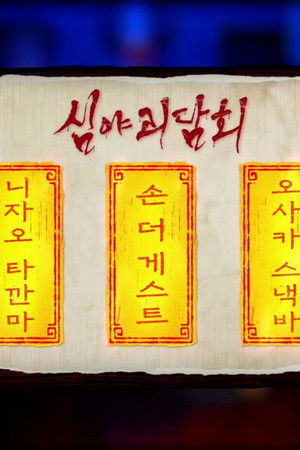 심야괴담회
니자오 타깐마
손 더 게스트
오사카 스낵바